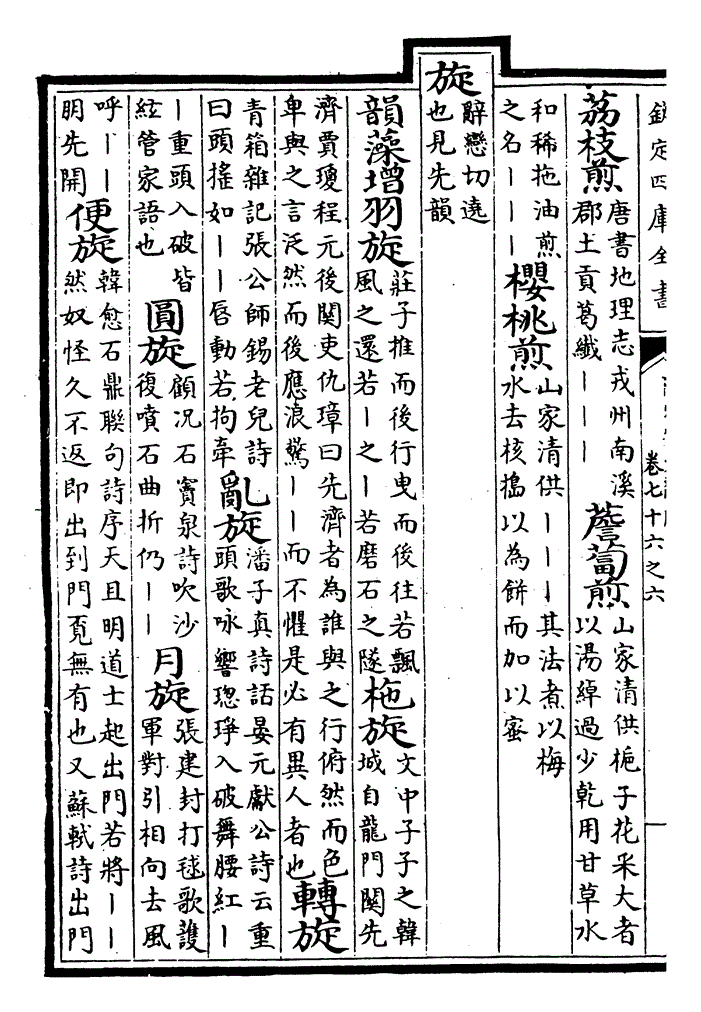 欽定四庫全書
卷七十六之六
荔枝煎
唐書地理志戎州南溪
郡土貢葛纖丨丨丨
薝蔔煎
山家清供梔子花采大者
以湯綽過少乾用甘草水
和稀拖油煎
之名丨丨丨
櫻桃煎
山家清供丨丨丨其法煮以梅
水去核搗以為餅而加以蜜
旋
辭戀切遶
也見先韻
韻藻增羽旋
莊子推而後行曳而後往若飄
風之還若丨之丨若磨石之隧
柂旋
文中子子之韓
城自龍門關先
濟賈瓊程元後関吏仇璋曰先濟者為誰與之行俯然而色
卑與之言泛然而後應浪驚丨丨而不懼是必有異人者也
轉旋
青箱雜記張公師錫老兒詩
曰頭搖如丨丨唇動若拘牽
亂旋
潘子真詩話晏元獻公詩云重
頭歌咏響璁琤入破舞腰紅丨
丨重頭入破皆
絃管家語也
圓旋
顧况石竇泉詩吹沙
復噴石曲折仍丨丨
月旋
張建封打毬歌護
軍對引相向去風
呼丨丨
明先開
便旋
韓愈石鼎聯句詩序天且明道士起出門若將丨丨
然奴怪久不返即出到門覓無有也又蘇軾詩出門